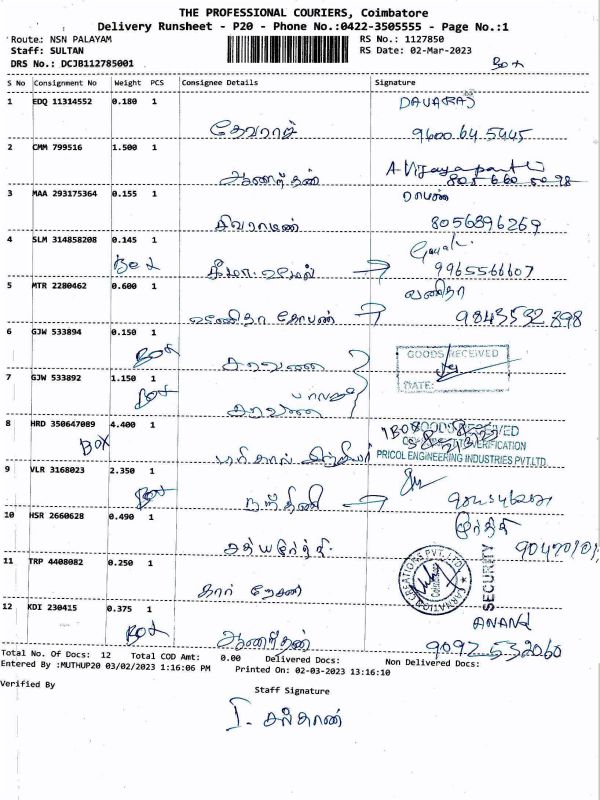 THE PROFESSIONAL COURIERS, Coimbatore
Delivery Runsheet - P20 - Phone No.:0422-3505555 - Page No.:1
Route: NSN PALAYAM RS No.: 1127850
Staff: SULTAN RS Date: 02-Mar-2023
DRS No.: DCJB112785001 Box
S No Consignment No Weight PCS Consignee Details Signature
1 EDQ 11314552 0.180 1 DAVARAJ
தேவராஜ் 9600645445
2 CMM 799516 1.500 1
ஆனந்தன்
3 MAA 293175364 0.155 1
சிவராமன் 8056896269
4 SLM 314858208 0.145 1
Box 9965566607
5 MTR 2280462 0.600 1 வனிதா
9843532898
6 GJW 533894 0.150 1
Box சரவணா GOODS RECEIVED
7 GJW 533892 1.150 1 DATE:
Box சரவணா
8 HRD 350647089 4.400 1 GOODS RECEIVED
BOX VERIFICATION
PRICOL ENGINEERING INDUSTRIES PVT.LTD
9 VLR 3168023 2.350 1
Box நந்தினி
10 HSR 2660628 0.490 1
சத்யமூர்த்தி
11 TRP 4408082 0.250 1 CARNATION CREATIONS PVT. LTD. SECURITY
12 KDI 230415 0.375 1 ANAND
Box ஆனந்தன் 9092532060
Total No. Of Docs: 12 Total COD Amt: 0.00 Delivered Docs: Non Delivered Docs:
Entered By :MUTHUP20 03/02/2023 1:16:06 PM Printed On: 02-03-2023 13:16:10
Verified By Staff Signature